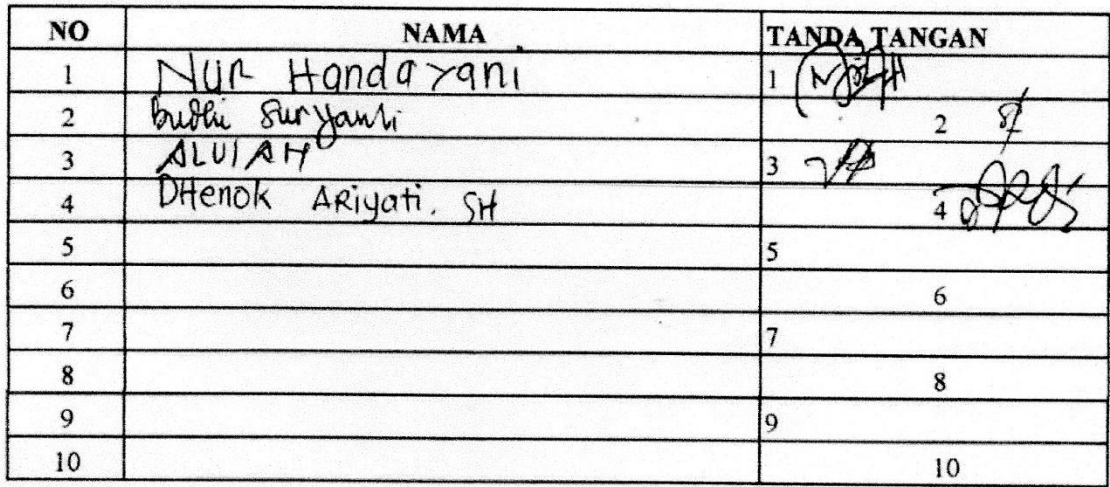 NO NAMA TANDA TANGAN
1 Nur Handayani 1
2 Budhi Suryanti 2
3 ALUIAH 3
4 DHenok ARiyati. SH 4
5 5
6 6
7 7
8 8
9 9
10 10